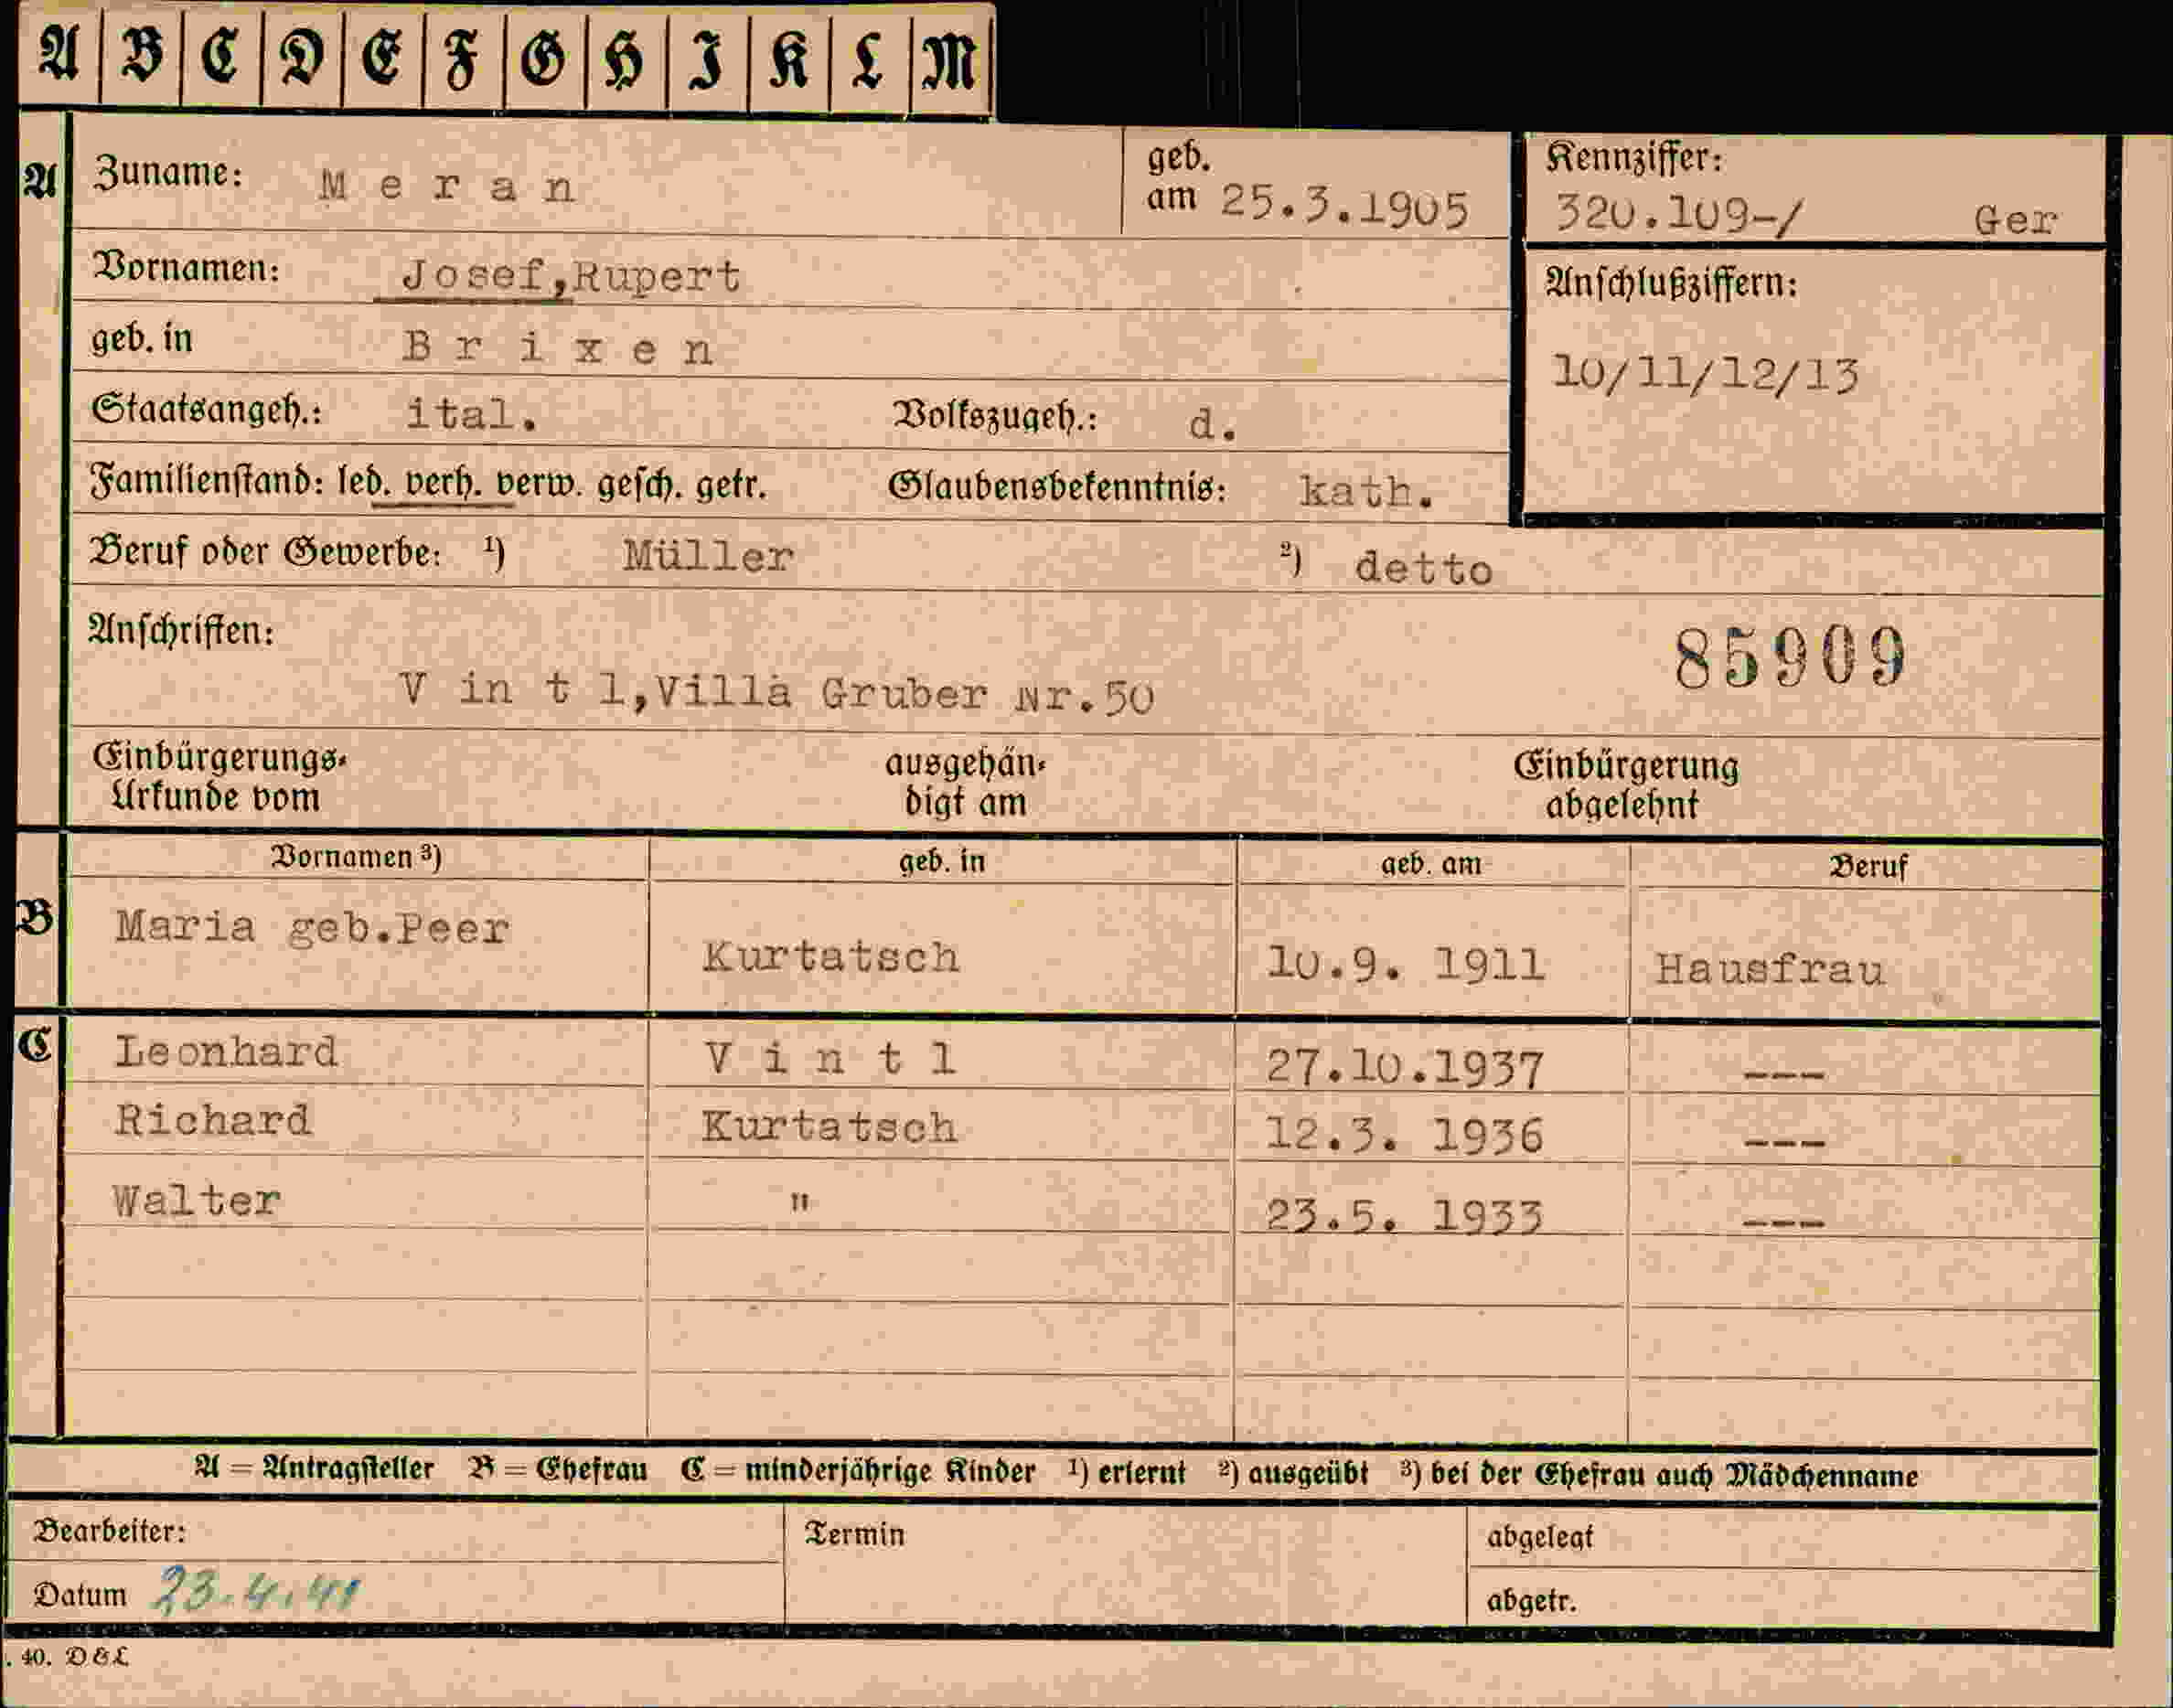 A B C D E F G H I K L M
A Zuname: Meran geb. am 25.3.1905 Kennziffer: 320.109-/ Ger
Vornamen: Josef,Rupert Anschlußziffern:
geb. in Brixen 10/11/12/13
Staatsangeh.: ital. Volkszugeh.: d.
Familienstand: led. verh. verw. gesch. getr. Glaubensbekenntnis: kath.
Beruf oder Gewerbe: ¹) Müller ²) detto
Anschriften: 85909
Vintl,Villa Gruber Nr.50
Einbürgerungs- ausgehän- Einbürgerung
Urkunde vom digt am abgelehnt
Vornamen ³) geb. in geb. am Beruf
B Maria geb.Peer Kurtatsch 10.9. 1911 Hausfrau
C Leonhard Vintl 27.10.1937 ---
Richard Kurtatsch 12.3. 1936 ---
Walter " 23.5. 1933 ---
A = Antragsteller B = Ehefrau C = minderjährige Kinder ¹) erlernt ²) ausgeübt ³) bei der Ehefrau auch Mädchenname
Bearbeiter: Termin abgelegt
Datum 23.4.41 abgetr.
. 40. D & L